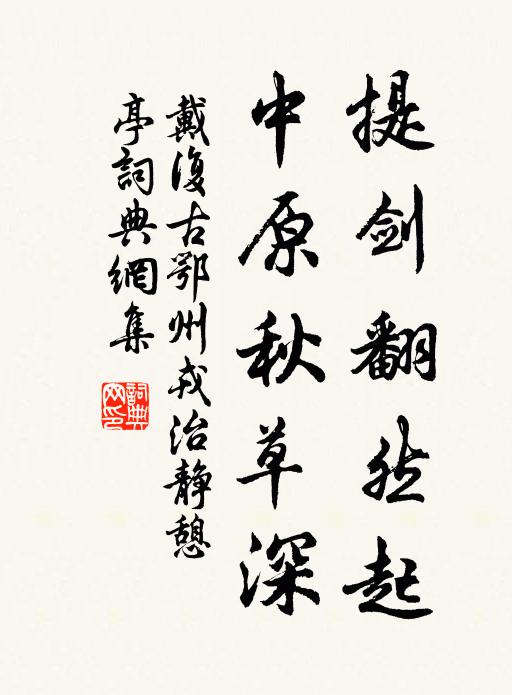 提剑翻然起
中原秋草深
戴復古鄂州戎治静憩
亭詞典網集
詞典网印